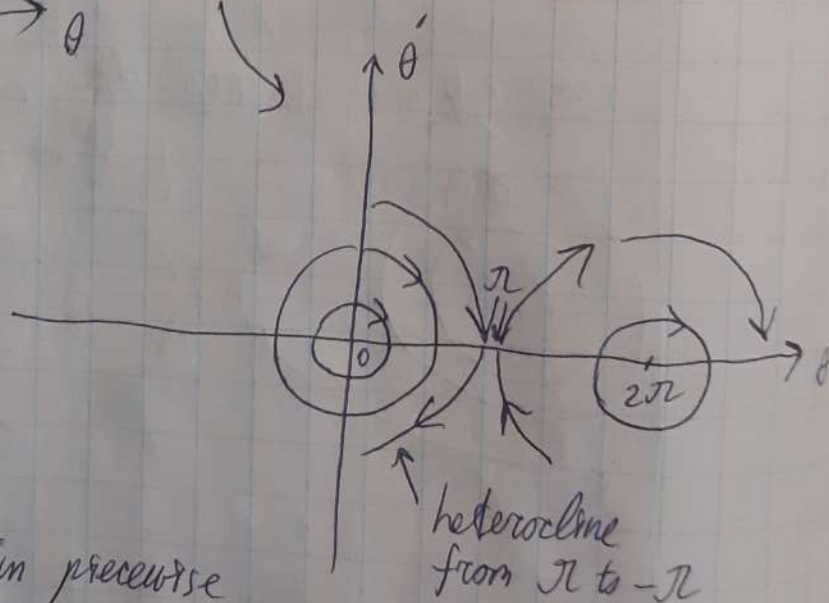 θ
θ'
π
0
2π
θ
heterocline
from π to -π
in piecewise